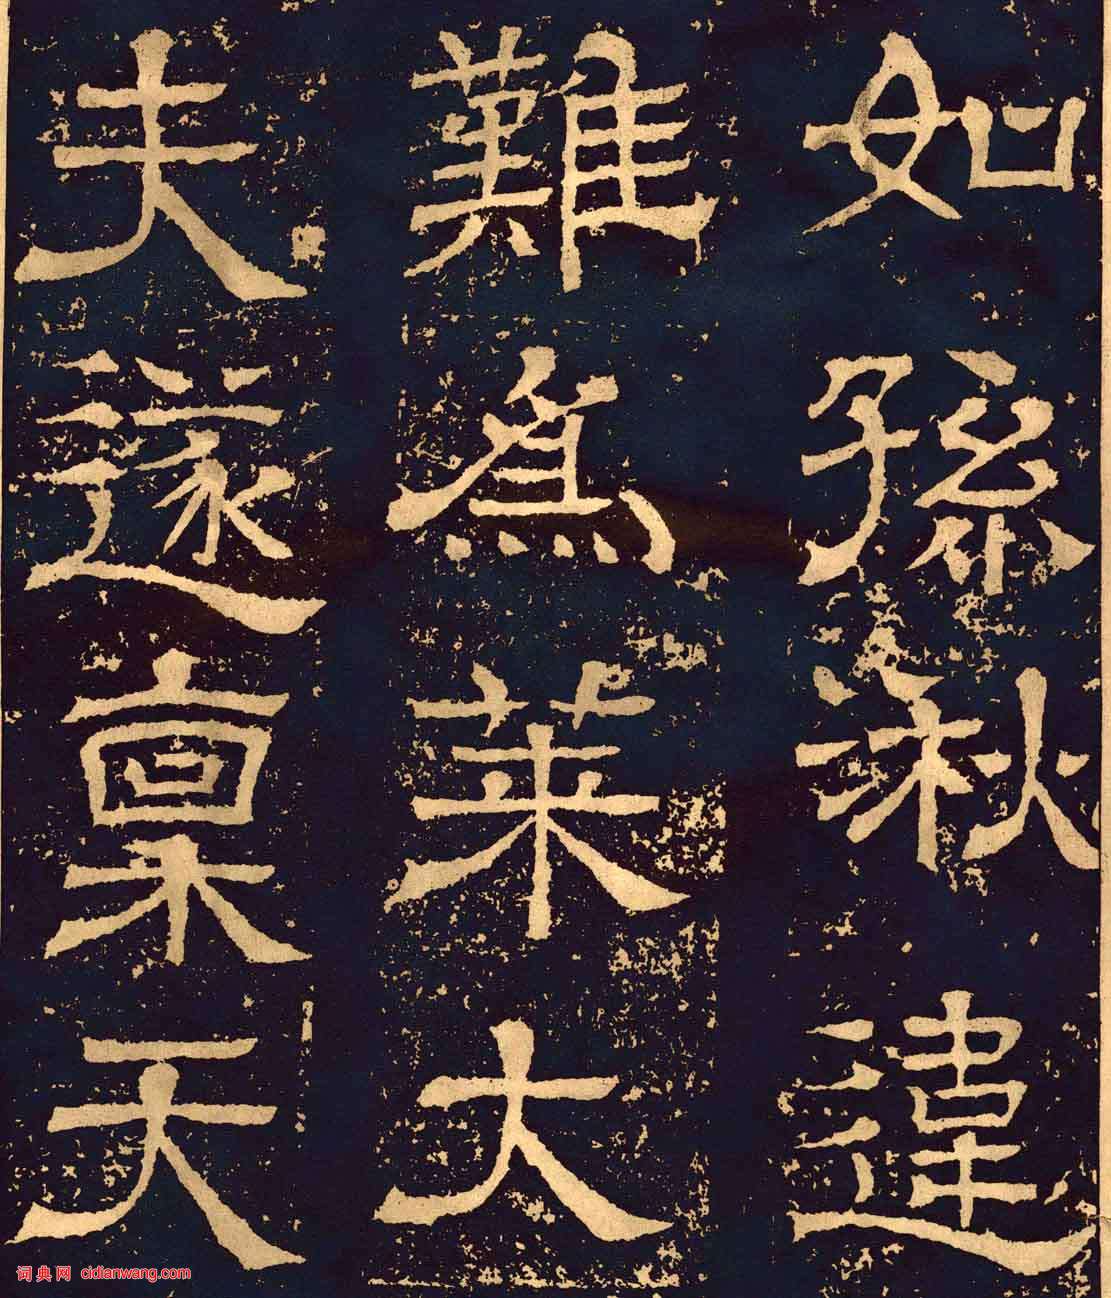 如孫湫違
難爲萊大
夫遂稟天
词典网 cidianwang.com